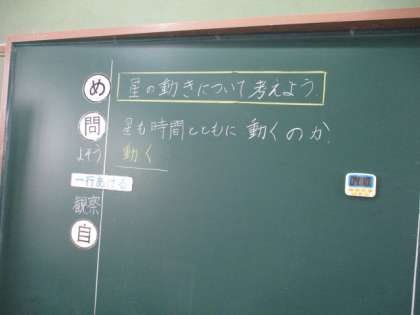 め 星の動きについて考えよう.
問 星も時間とともに動くのか.
よそう 動く
一行あける
観察
自